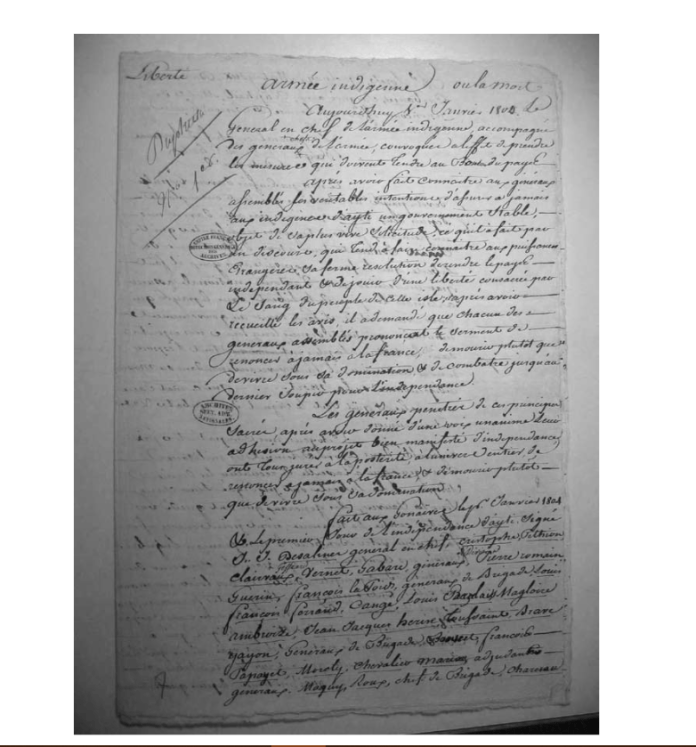 Liberte armée indigenne ou la mort
Aujourd'huy 1er Janvier 1804. Le
General en chef de l'armée indigenne, accompagné
des generaux de l'armée, convoqués a l'effet de prendre
les mesures qui doivent tendre au Bonheur du pays
après avoir fait connaitre aux généraux
assemblés ses veritables intentions d'assurer a jamais
aux indigenes d'ayti un gouvernement stable,
objet de sa plus vive solicitude; ce qu'il a fait par
un discours, qui tend a faire connaitre aux puissances
Etrangeres, sa ferme resolution de rendre le pays
independant & de jouir d'une liberté consacrée par
Le Sang du peuple de cette isle, & apres avoir
recueilli les avis, il a demandé que chacun des
generaux assemblés prononcat le serment de
renoncer a jamais a la france, de mourir plutot que
de vivre sous sa domination & de combatre jusqu'au
dernier soupir pour l'independance
Les generaux penetrés de ces principes
Sacrés, après avoir donné d'une voix unanime leur
adhesion au projet bien manifesté d'independance
ont tous juré a la posterité, a l'univers entier de
renoncer a jamais a la france, & de mourir plutot
que de vivre sous sa domination
fait aux Gonaives, le 1er Janvier 1804
& Le premier Jour de l'independance d'ayti. Signé
J. J. Dessalines general en chef, Cristophe, Pethion
Clairvaux, Vernet, Gabart, généraux Pierre romain
Guerin, françois la Pointe, generaux de Brigade, Louis
françois Magloire
ambroise, Jean Jacques herne, toussaint Brave
yayou, Generaux de Brigade, françois
Papayet, Morely, chevalier marion, adjudants
generaux. Magny, Roux, chefs de Brigade,